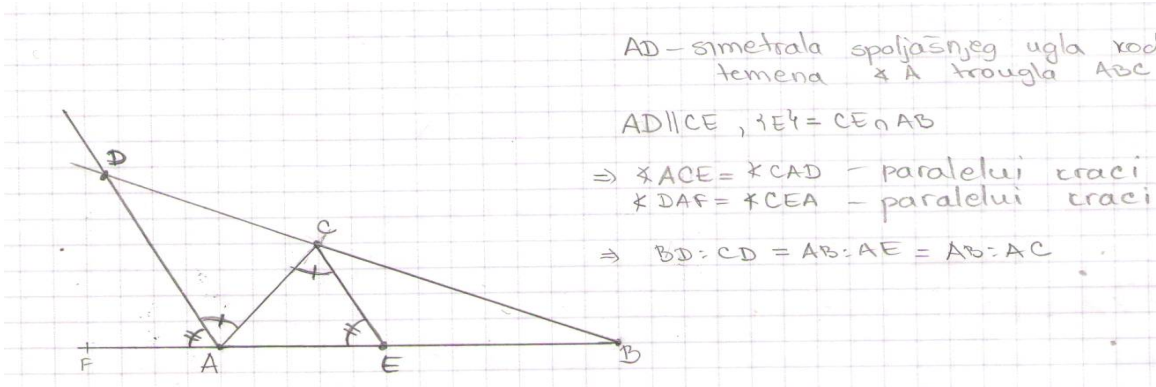 AD – simetrala spoljašnjeg ugla kod
temena ∡ A trougla ABC
AD||CE , {E} = CE ∩ AB
⇒ ∡ACE = ∡CAD – paralelni kraci
∡DAF = ∡CEA – paralelni kraci
⇒ BD : CD = AB : AE = AB : AC
D
C
F
A
E
B